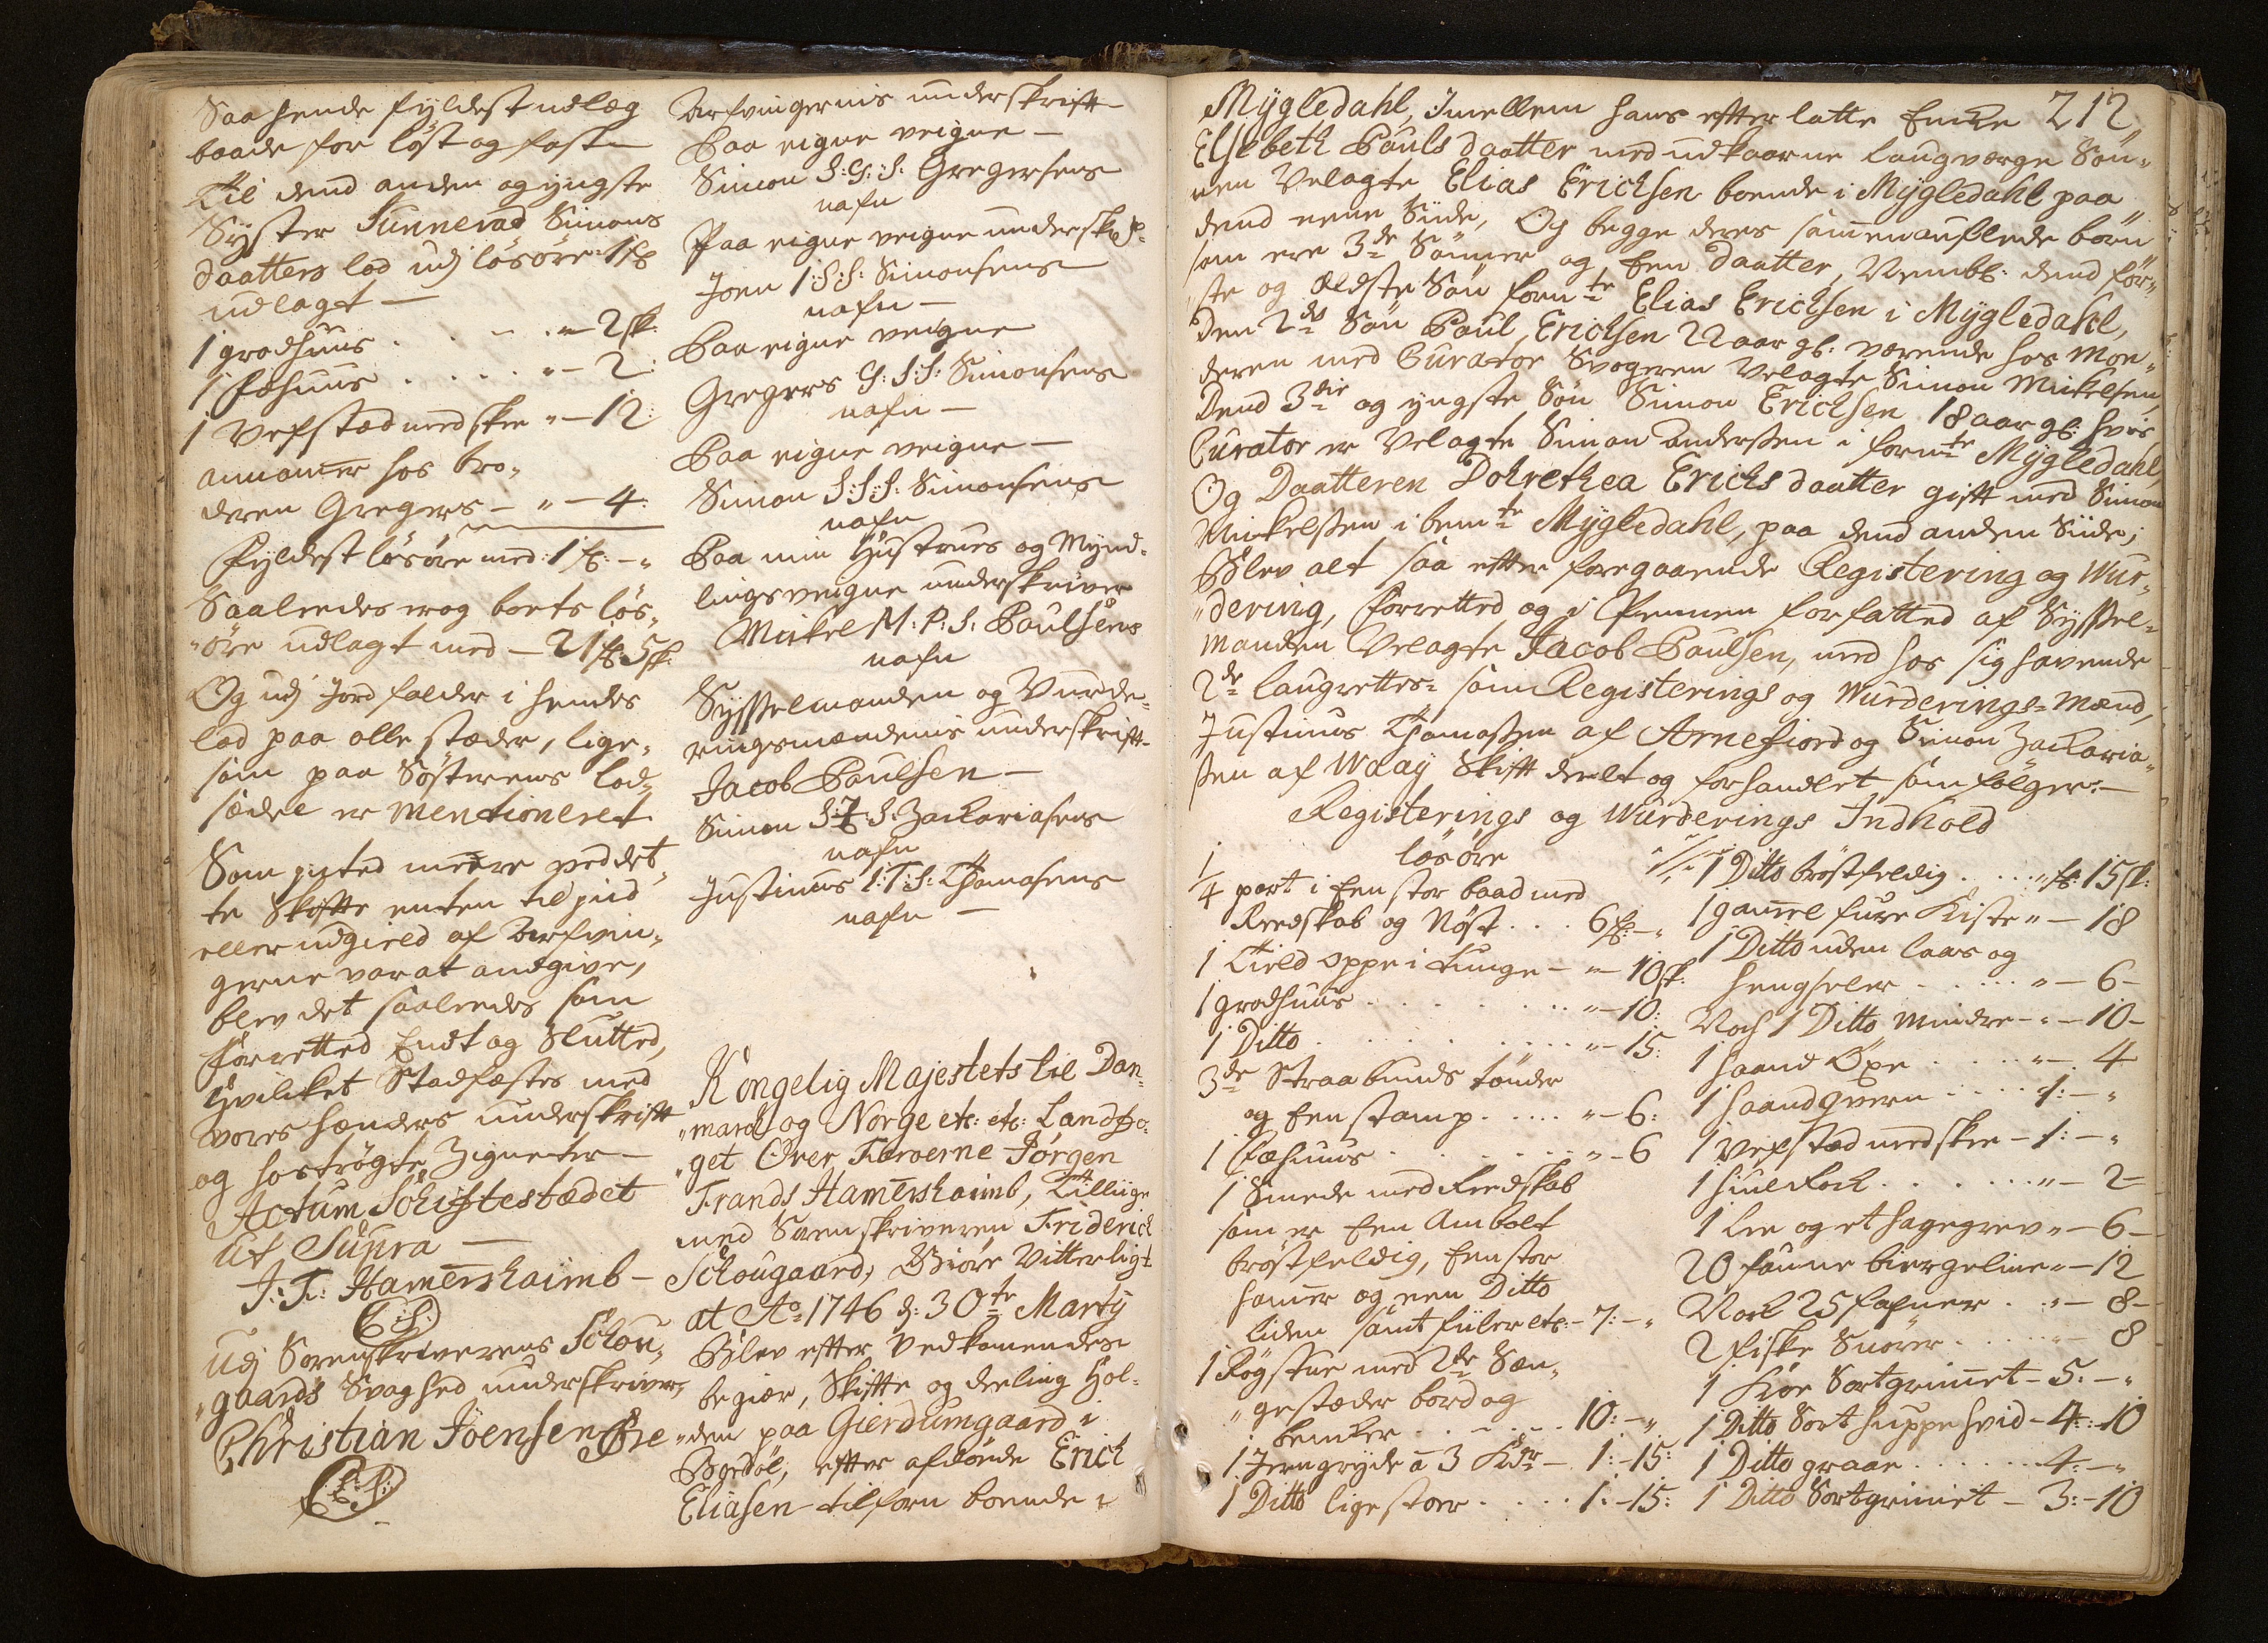 Saa hende fyldest udlæg
baade for löst og fast
Til dend anden og yngste
Syster Sunnevad Simons
daatters lod udj lösöre: 1
udlagt —
1 gradhuus . . . " — 2 sk:
1 Fæhuus . . . . " — 2:
1 Vefstad med skee " — 12:
annamer hos bro„
deren Gregers — " — 4:
Fyldest lösöre med: 1 — "
Saaleedes er og boets lös„
„öre udlagt med — 21 5 sk:
Og udj Jord falder i hendes
lod paa alle stæder, lige„
som paa Sösterens lod„
sædel er Mentioneret
Som inted meere ved det„
te Skifte enten til giæld
eller udgield af Arfvin„
gerne var at andgive,
blev det saaleedes som
forretted Endt og Slutted,
Hvilcket Stadfæstes med
vores hænders underskrift
og hoströgte Zigneter —
Actum Schiftestædet
ut Supra —
J: F: Hamershaimb —
(L:S:)
Udj Sorenskriverens Schou„
„gaards Svaghed underskriver,
Christian Joensen Öre
(L:S:)
Arfvingernis underskrift
Paa eigne veigne —
Simon S: G: S: Gregersens
nafn
Paa eigne veigne underskr:
Joen I: S: S: Simonsens
nafn —
Paa eigne veigne
Gregers G: S: S: Simonsens
nafn —
Paa eigne veigne —
Simon S: S: S: Simonsens
nafn
Paa min Hustrues og Mynd„
lings veigne underskriver
Mickel M: P: S: Poulsens
nafn
Sysselmanden og Vurde„
ringsmændenis underskrift
Jacob Poulsen —
Simon S: Z: S: Zachariasens
nafn
Justinus I: T: S: Thomasens
nafn —
Kongelig Majestets til Dan„
„march og Norge etc: etc: Landfo„
„get Over Færoerne Jørgen
Frands Hamershaimb, Tilliige
med Sorenskriveren Friderich
Schougaard, Giöre Vitterligt
at Ao: 1746 d: 30te Marty
Blev efter Vedkommendes
begiær, Skifte og deeling Hol„
„den paa Gierdumgaard i
Bordöe, efter afdöde Erich
Eliasen tilforn boende i
Mygledahl, Imellem hans efterlatte Encke 212
Elsebeth Pouls daatter med udkaarne laugværge Sön„
nen Velagte Elias Erichsen boende i Mygledahl paa
dend eene Siide, Og begge deres sammenauflede börn
som ere 3de Sönner og Een daatter, Nembl: dend för„
ste og Ældste Sön fornte Elias Erichsen i Mygledahl,
Den 2den Sön Poul Erichsen 22 aar gl: værende hos Moe„
deren med Curator Svogeren Velagte Simon Mickelsen,
Dend 3die og yngste Sön Simon Erichsen 18 aar gl: hvis
Curator er Velagte Simon Andersen i fornte Mygledahl,
Og Daatteren Dohrethea Erichs daatter gift med Simon
Mickelsen i bemte Mygledahl, paa dend anden Siide;
Blev alt saa efter foregaaende Registering og Wur„
„dering, forretted og i Pennen forfatted af Syssel„
manden Velagte Jacob Poulsen, med hos sig havende
2de laugrettes= som Registerings og Wurderings=Mænd,
Justinus Thomassen af Arnefiord og Simon Zacharia„
sen af Waay Skift deelt og forhandlet som fölger:—
Registerings og Wurderings Indhold
lösöre
1/4 part i Een stor baad med
Reedskab og Nöst . . . 6 — "
1 Tield oppe i Tunge — " — 10 sk:
1 gradhuus . . . . . " — 10:
1 Ditto . . . . . " — 15:
3de Straa bunds tönder
og Een stamp . . . . " — 6:
1 Fæhuus . . . . . " — 6
1 Smede med Reedskab
som er Een Ambolt
bröstfeldig, Een stor
hamer og een Ditto
liden samt fiiler etc: — 7: — "
1 Rögstue med 2de Sæn„
„gestæder bord og
bencker . . . . . 10: — "
1 Jerngryde à 3 Kdr — 1: — 15:
1 Ditto lige stor . . . . 1: — 15:
1 Ditto bröstfeldig . . . " 15 sk:
1 gamel fure Kiste " — 18
1 Ditto uden laas og
hengseler . . . . " — 6 —
Noch 1 Ditto Mindre — " — 10 —
1 haand Öxe . . . . " — 4
1 haandqvern . . . . 1: — "
1 Vefstad med skee — 1: — "
1 hiuel Rock . . . . . " — 2 —
1 Lee og et hagegrev " — 6 —
20 faune biergeline " — 12
Noch 25 fafner . . " — 8 —
2 fiske Snörer . . . . " — 8
1 Kör Sortgrimet — 5: — "
1 Ditto Sort huppe hvid — 4: — 10
1 Ditto graae . . . . . 4: — "
1 Ditto Sortgrimet — 3: — 10